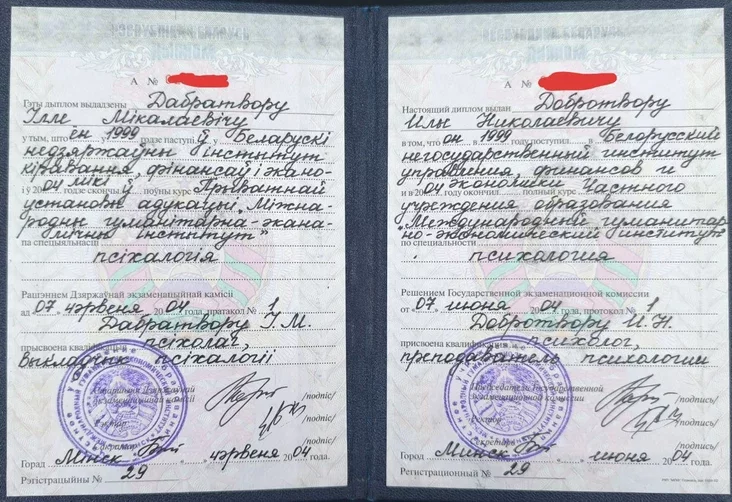 А №
Гэты дыплом выдадзены Дабратвору
Ілле Мікалаевічу
у тым, што ён 1999 годзе паступіў у Беларускі
недзяржаўны інстытут
кіравання, фінансаў і экано-
мікі
і ў 2004 годзе скончыў поўны курс Прыватнай
установы адукацыі, Міжна-
родны гуманітарна-экана-
мічны інстытут"
па спецыяльнасці
псіхалогія
Рашэннем Дзяржаўнай экзаменацыйнай камісіі
ад 07 чэрвеня 2004 года, пратакол № 1
Дабратвору І.М.
прысвоена кваліфікацыя псіхолаг,
выкладчык псіхалогіі
Старшыня Дзяржаўнай
экзаменацыйнай камісіі /подпіс/
Рэктар /подпіс/
Сакратар /подпіс/
Горад Мінск чэрвеня 2004 года.
Рэгістрацыйны № 29
А №
Настоящий диплом выдан Добротвору
Илье Николаевичу
в том, что он 1999 году поступил в Белорусский
негосударственный институт
управления, финансов и
экономики
и в 2004 году окончил полный курс Частного
учреждения образования
"Международный гуманитар-
но-экономический институт"
по специальности
психология
Решением Государственной экзаменационной комиссии
от 07 июня 2004 года, протокол № 1
Добротвору И.Н.
присвоена квалификация психолог,
преподаватель психологии
Председатель Государственной
экзаменационной комиссии /подпись/
Ректор /подпись/
Секретарь /подпись/
Город Минск июня 2004 года.
Регистрационный № 29